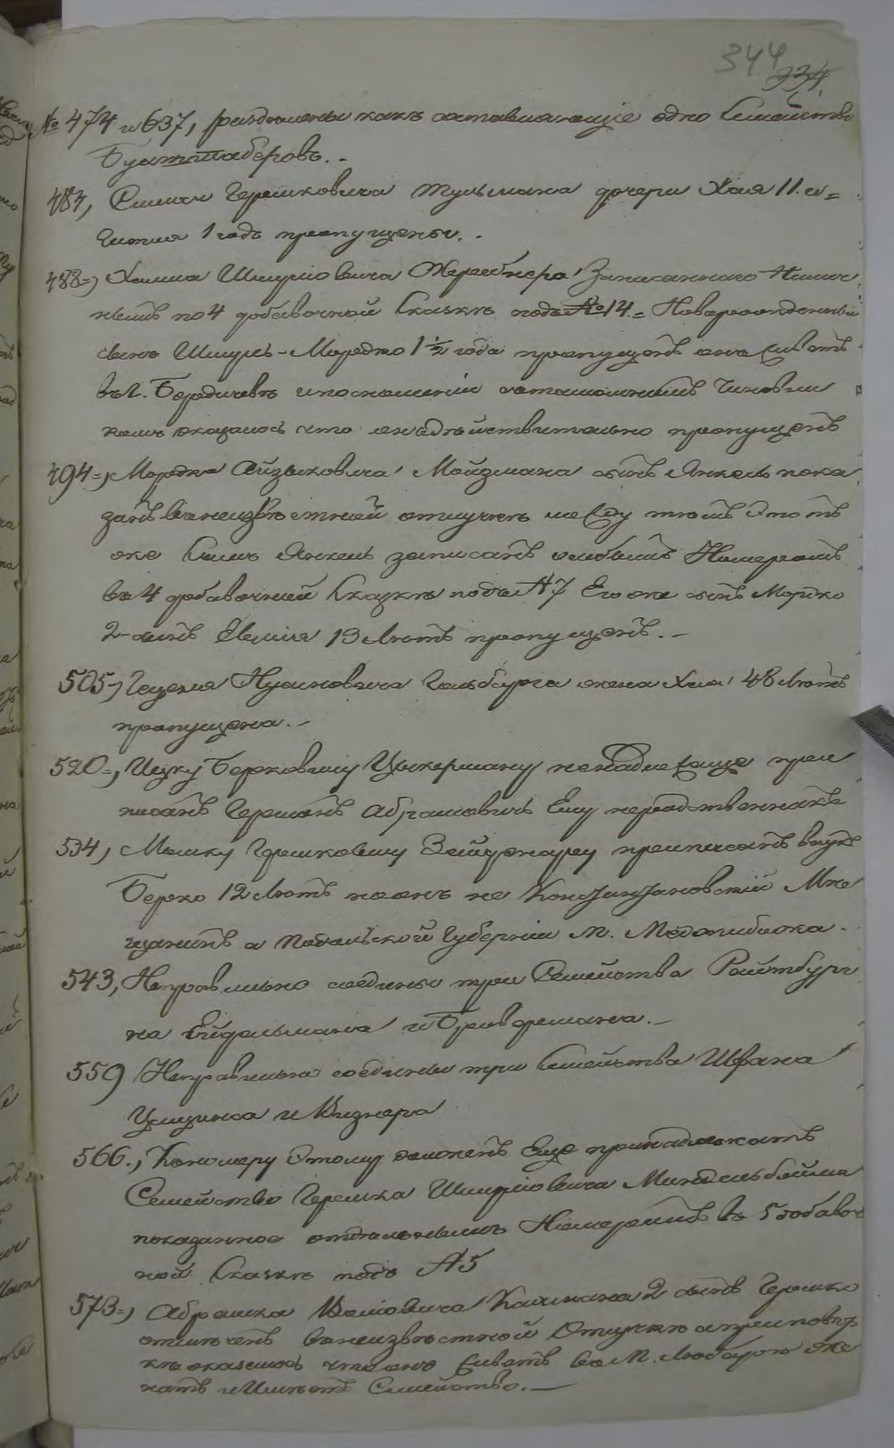 344
334
№ 474 и 637, раздѣлены какъ составляющіе одно Семейство
Бухштаберовъ. -
483, Симхи Гершковича Тульмана дочери Хая 11. и
1 годъ пропущены. -
488, Хаима Шмуліовича записаннаго
нымъ по 4 добавочной Сказкѣ подъ № 14 - Новорожденный
сынъ Шмуль-Мордко 1 ½ года пропущенъ онъ живетъ
въ г. Бердичевѣ и по сношеніи съ тамошнимъ Чиновни
комъ оказалось что онъ дѣйствительно пропущенъ
494, Мордка Айзыковича Мойзмана сынъ Янкель пока
занъ въ неизвѣстной отлучкѣ между тѣмъ этотъ
же самъ Янкель записанъ особымъ Номеромъ
въ 4 добавочной Сказкѣ подъ № 7 Его же сынъ Мордко
2 сынъ 13 лѣтъ пропущенъ. -
505, Гецеля Нусиновича Гольдбурга жена Хая 48 лѣтъ
пропущена. -
520, Ицку Берковичу Цукерману ненадлежаще при
писанъ Гершонъ Абрамовичъ Ему
534, Мошку Гершковичу Зейденгу приписанъ внукъ
Берко 12 лѣтъ но онъ не Константиновскій Мѣ
щанинъ а Подольской Губерніи м. Меджибожа. -
543, Неправильно соединены три Семейства Ройтбург
на Ейдельмана и Бронфермана. -
559 Неправильно соединены три Семейства
и Визнера
566., К номеру Этому долженъ Еще принадлежать
Семейство Гершка Шмуліовича Миндельбойма
показанное отдѣльнымъ Номеромъ въ 5 добавоч
ной Сказкѣ подъ № 5
573, Абрамка Волковича Каймана 2 сынъ Гершко
отмѣченъ въ неизвѣстной Отлучкѣ а при повѣр
кѣ оказалось что онъ живетъ въ М. Любарѣ же
натъ и Имѣетъ Семейство. -